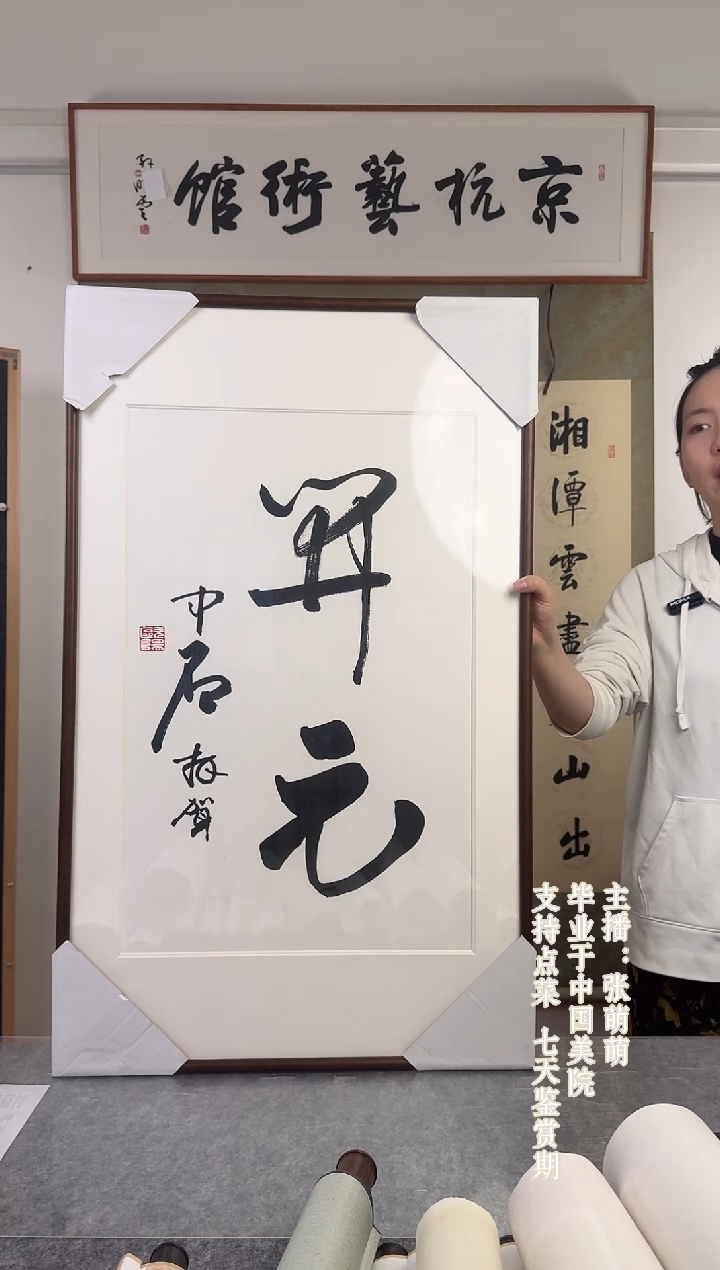 京杭藝術館
開元
中石
湘潭雲盡
山出
主播：张萌萌
毕业于中国美院
支持点菜 七天鉴赏期